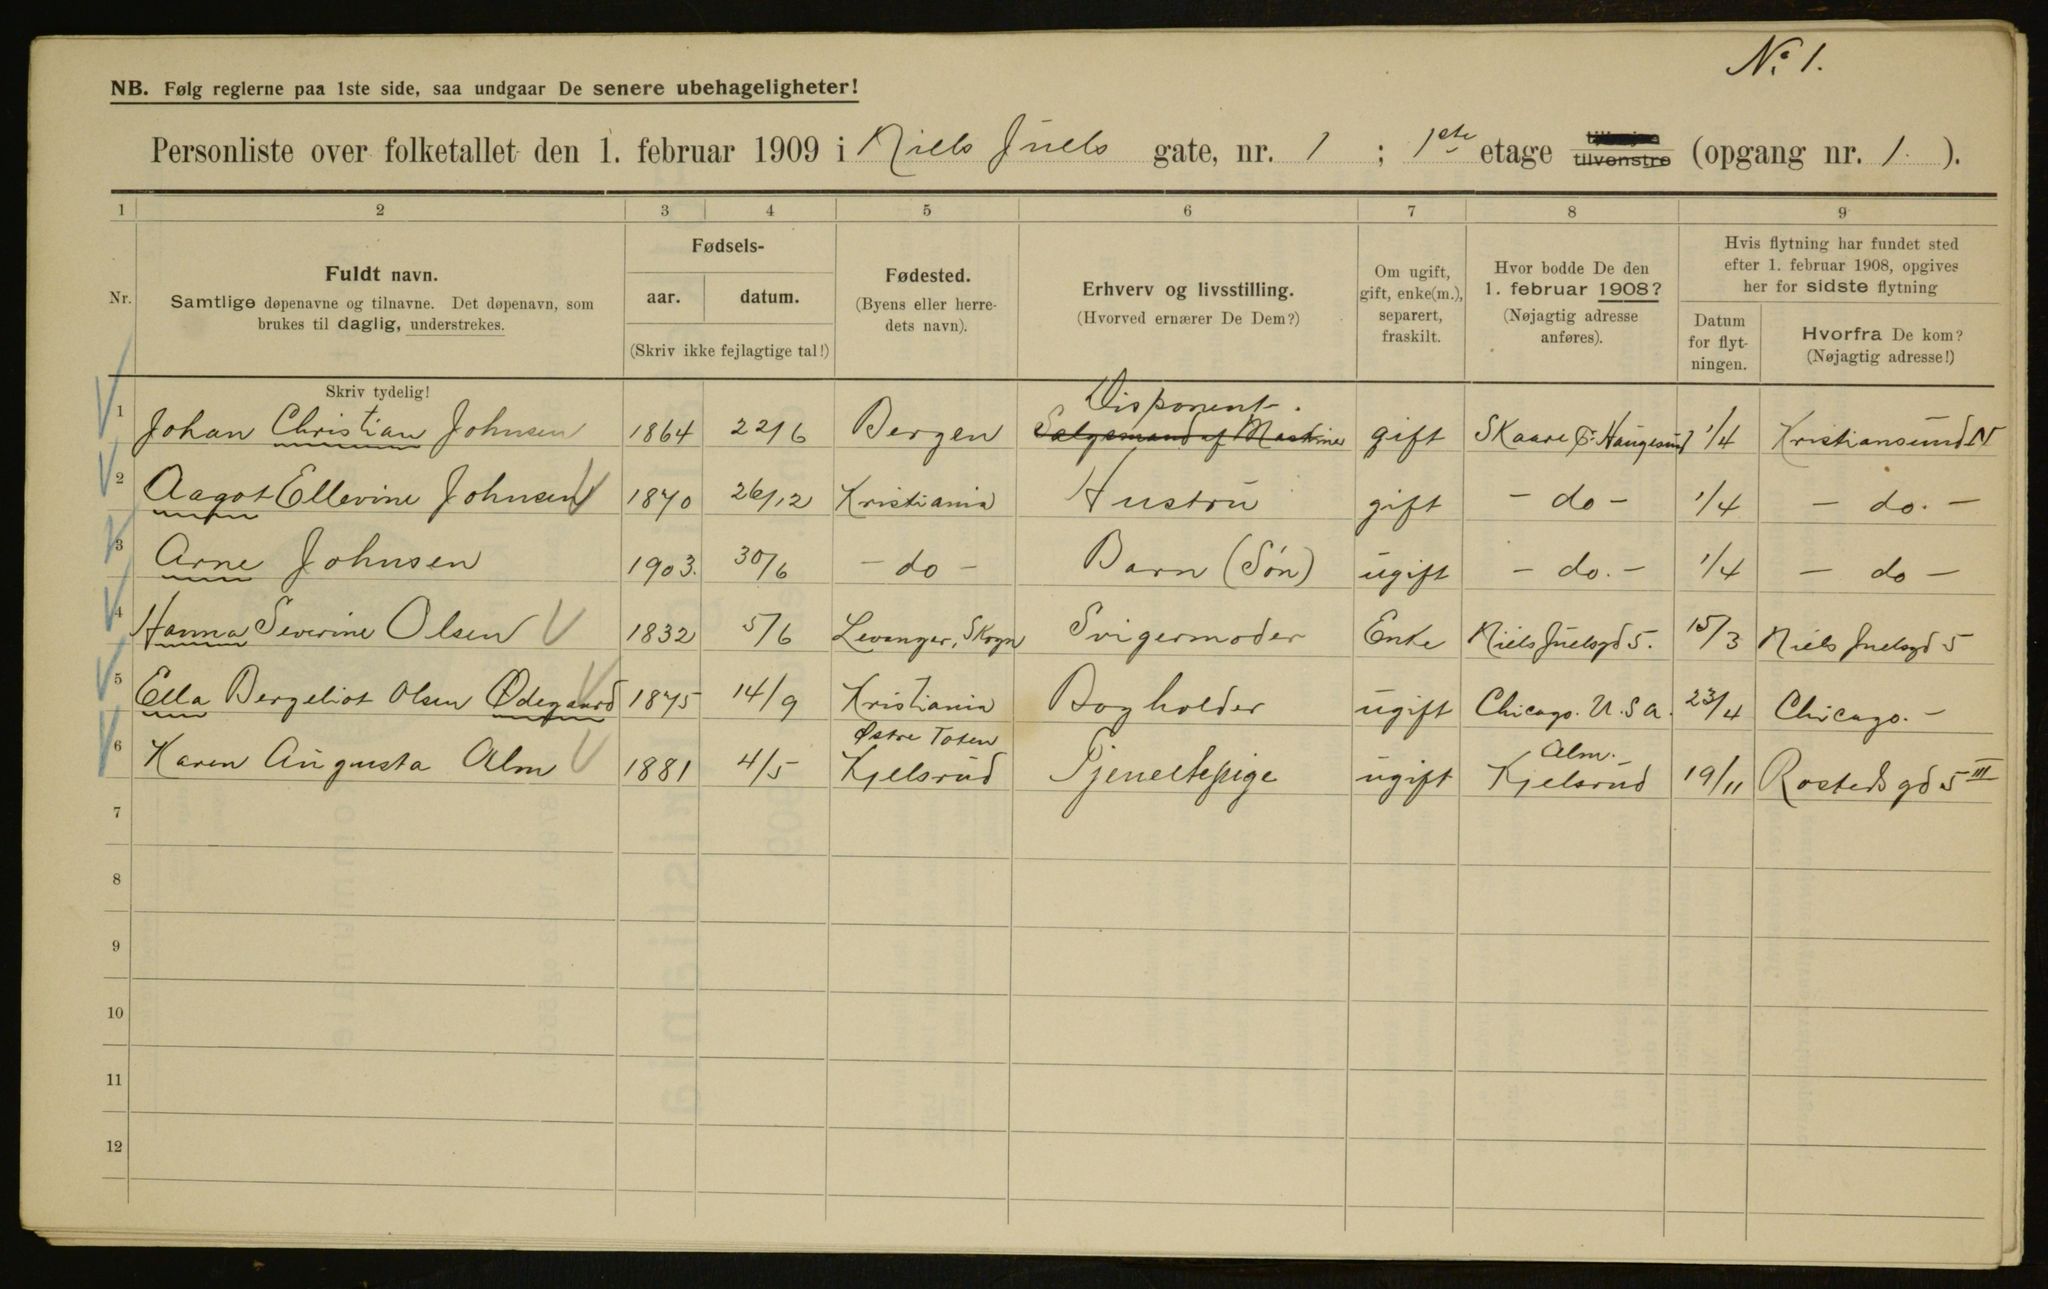 No. 1.
NB. Følg reglerne paa 1ste side, saa undgaar De senere ubehageligheter!
Personliste over folketallet den 1. februar 1909 i Niels Juels gate, nr. 1 ; 1ste etage tilhøire tilvenstre (opgang nr. 1. ).
1 2 3 4 5 6 7 8 9
Nr.
Fuldt navn.
Samtlige døpenavne og tilnavne. Det døpenavn, som
brukes til daglig, understrekes.
Fødsels-
aar. datum.
(Skriv ikke fejlagtige tal!)
Fødested.
(Byens eller herre-
dets navn).
Erhverv og livsstilling.
(Hvorved ernærer De Dem?)
Om ugift,
gift, enke(m.),
separert,
fraskilt.
Hvor bodde De den
1. februar 1908?
(Nøjagtig adresse
anføres).
Hvis flytning har fundet sted
efter 1. februar 1908, opgives
her for sidste flytning
Datum
for flyt-
ningen.
Hvorfra De kom?
(Nøjagtig adresse!)
Skriv tydelig!
Disponent.
1 Johan Christian Johnsen 1864 22/6 Bergen Salgsmand af Maskiner gift Skaare pr. Haugesund 1/4 Kristiansund N
2 Aagot Ellevine Johnsen 1870 26/12 Kristiania Hustru gift - do - 1/4 - do. -
3 Arne Johnsen 1903. 30/6 - do - Barn (Søn) ugift - do. - 1/4 - do -
4 Hanna Severine Olsen 1832 5/6 Levanger, Skogn Svigermoder Enke Niels Juelsgd 5. 15/3 Niels Juelsgd 5
5 Ella Bergeliot Olsen Ødegaard 1875 14/9 Kristiania Bogholder ugift Chicago. U.S.A. 23/4 Chicago. -
Østre Toten Alm.
6 Karen Augusta Alm 1881 4/5 Kjelsrud Tjenestepige ugift Kjelsrud 19/11 Rostedsgd 5 III
7
8
9
10
11
12